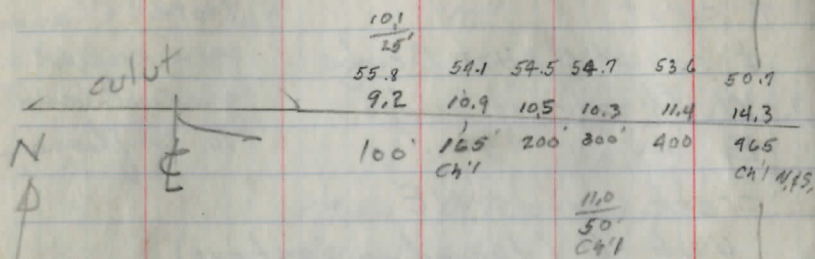 10.1
25'
culut
55.8 54.1 54.5 54.7 53.6 50.7
9.2 10.9 10.5 10.3 11.4 14.3
N
₵
100' 165' 200' 300' 400 465
Ch'l Ch'l N,&S,
11.0
50'
Ch'l